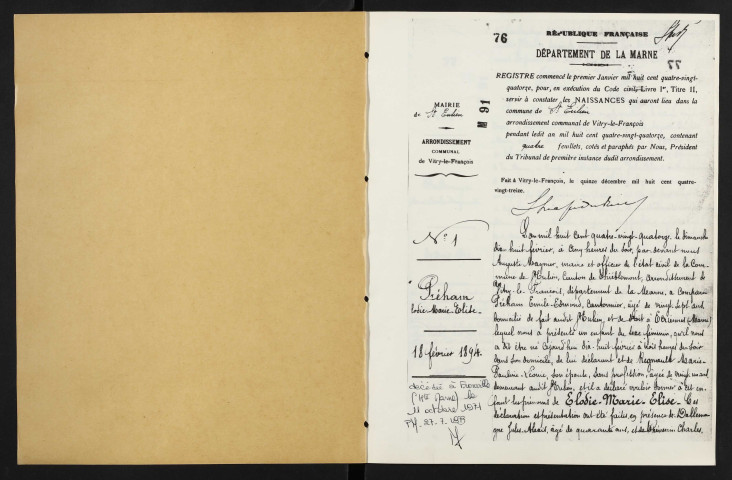 76
RÉPUBLIQUE FRANÇAISE
DÉPARTEMENT DE LA MARNE
77
REGISTRE commencé le premier Janvier mil huit cent quatre-vingt-
quatorze, pour, en exécution du Code civil, Livre Ier, Titre II,
servir à constater les NAISSANCES qui auront lieu dans la
commune de St Eulien
arrondissement communal de Vitry-le-François
pendant ledit an mil huit cent quatre-vingt-quatorze, contenant
quatre feuillets, cotés et paraphés par Nous, Président
du Tribunal de première instance dudit arrondissement.
Fait à Vitry-le-François, le quinze décembre mil huit cent quatre-
vingt-treize.
MAIRIE
de St Eulien
ARRONDISSEMENT
COMMUNAL
de Vitry-le-François
16
N° 1
Préham
Elodie-Marie-Elise
18 février 1894
décédée à
le
11 octobre 1971
L'an mil huit cent quatre-vingt-quatorze, le dimanche
dix huit février, à cinq heures du soir, par devant nous
Auguste, maire et officier de l'état civil de la Com-
mune de St Eulien, Canton de Thiéblemont, arrondissement de
Vitry-le-François, département de la Marne, a comparu
Préham Emile-Edmond, Cantonnier, âgé de vingt sept ans
domicilié de fait audit St Eulien, et de droit à Etrepy (Marne)
lequel nous a présenté un enfant du sexe féminin, qu'il nous
a dit être né cejourd'hui dix-huit février à trois heures du soir
dans son domicile, de lui déclarant et de Regnault Marie-
Pauline, son épouse, sans profession, âgée de vingt un ans
demeurant audit St Eulien, et il a déclaré vouloir donner à cet en-
fant les prénoms de Elodie-Marie-Elise. Ces
déclaration et présentation ont été faites en présence de Dallema-
gne Jules Alexis, âgé de quarante ans, et de Charles